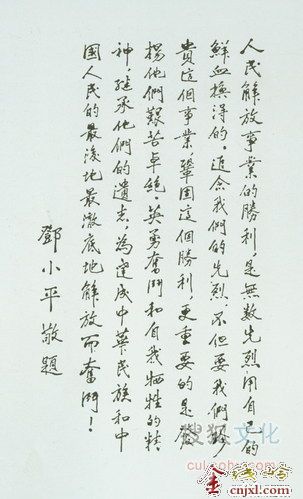 人民解放事業的勝利，是無数先烈用自己的
鮮血換得的。追念我們的先烈，不但要我們珍
貴這個事業，鞏固這個勝利，更重要的是發
揚他們艱苦卓絕、英勇奮鬥和自我牺牲的精
神，继承他們的遺志，為達成中華民族和中
国人民的最後地最澈底地解放而奮鬥！
鄧小平敬題
搜狐文化
cul.sohu.com
cnjxl.com